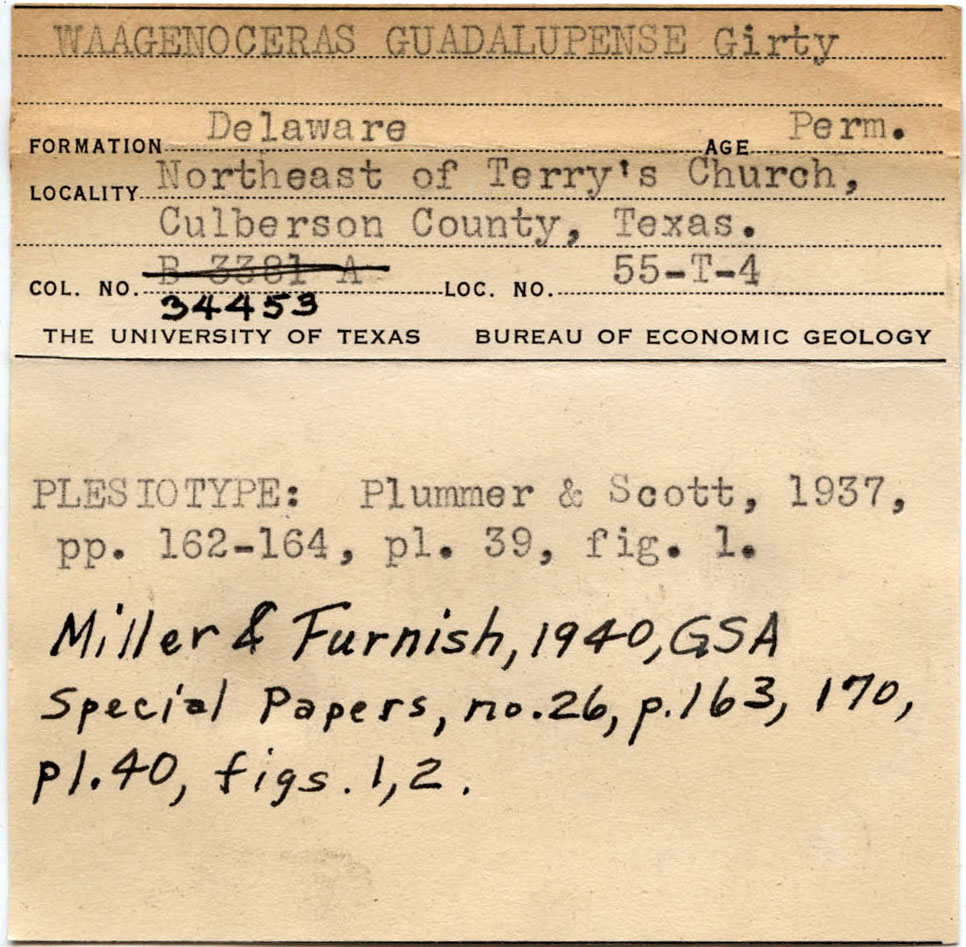 WAAGENOCERAS GUADALUPENSE Girty
FORMATION Delaware AGE Perm.
LOCALITY Northeast of Terry's Church,
Culberson County, Texas.
COL. NO. B 3381 A LOC. NO. 55-T-4
34453
THE UNIVERSITY OF TEXAS BUREAU OF ECONOMIC GEOLOGY
PLESIOTYPE: Plummer & Scott, 1937,
pp. 162-164, pl. 39, fig. 1.
Miller & Furnish, 1940, GSA
Special Papers, no.26, p.163, 170,
pl.40, figs. 1,2.